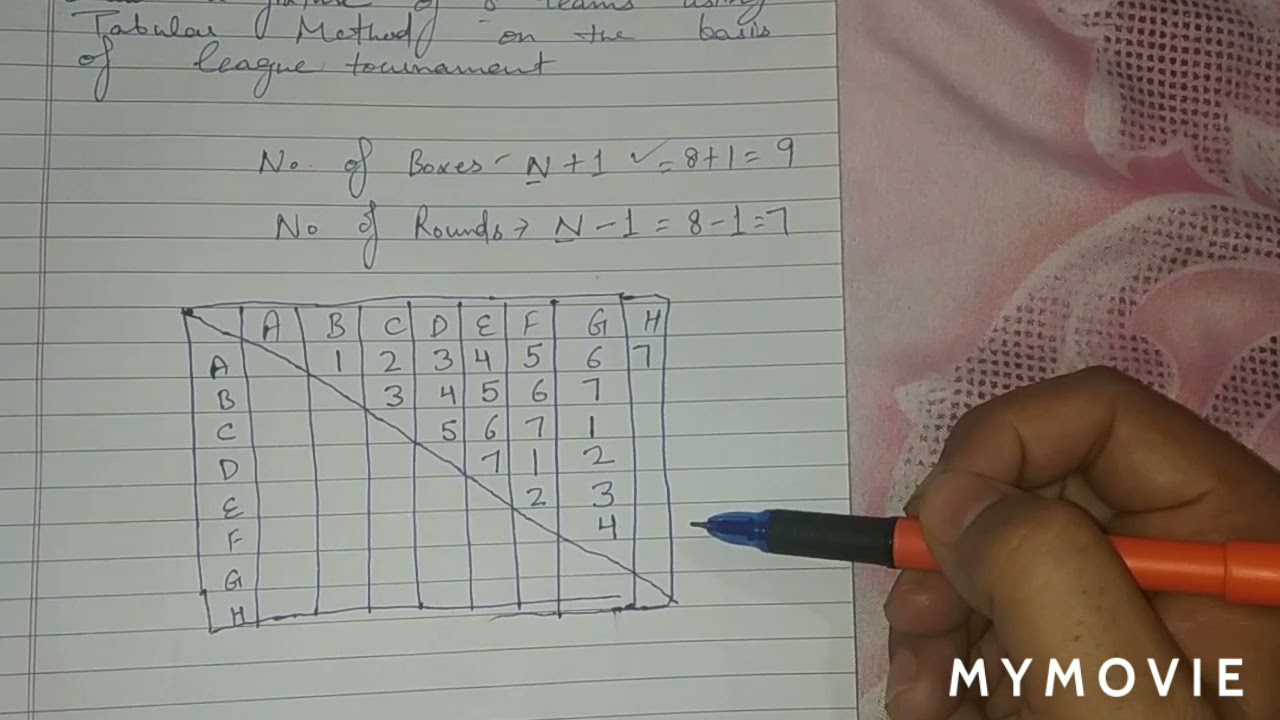 a fixture of 8 teams using
Tabular Method on the basis
of league tournament
No. of Boxes - N + 1 ✓ = 8+1 = 9
No of Rounds → N - 1 = 8 - 1 = 7
A B C D E F G H
A 1 2 3 4 5 6 7
B 3 4 5 6 7
C 5 6 7 1
D 7 1 2
E 2 3
F 4
G
H
MYMOVIE